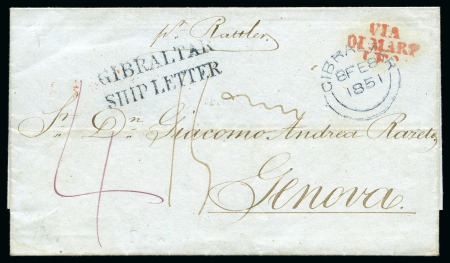 pr. Rattler.
VIA
DI MARE
GIBRALTAR
SHIP LETTER
GIBRALTAR
8FE8
1851
Sr. Dn. Giacomo Andrea
Genova.
4 15